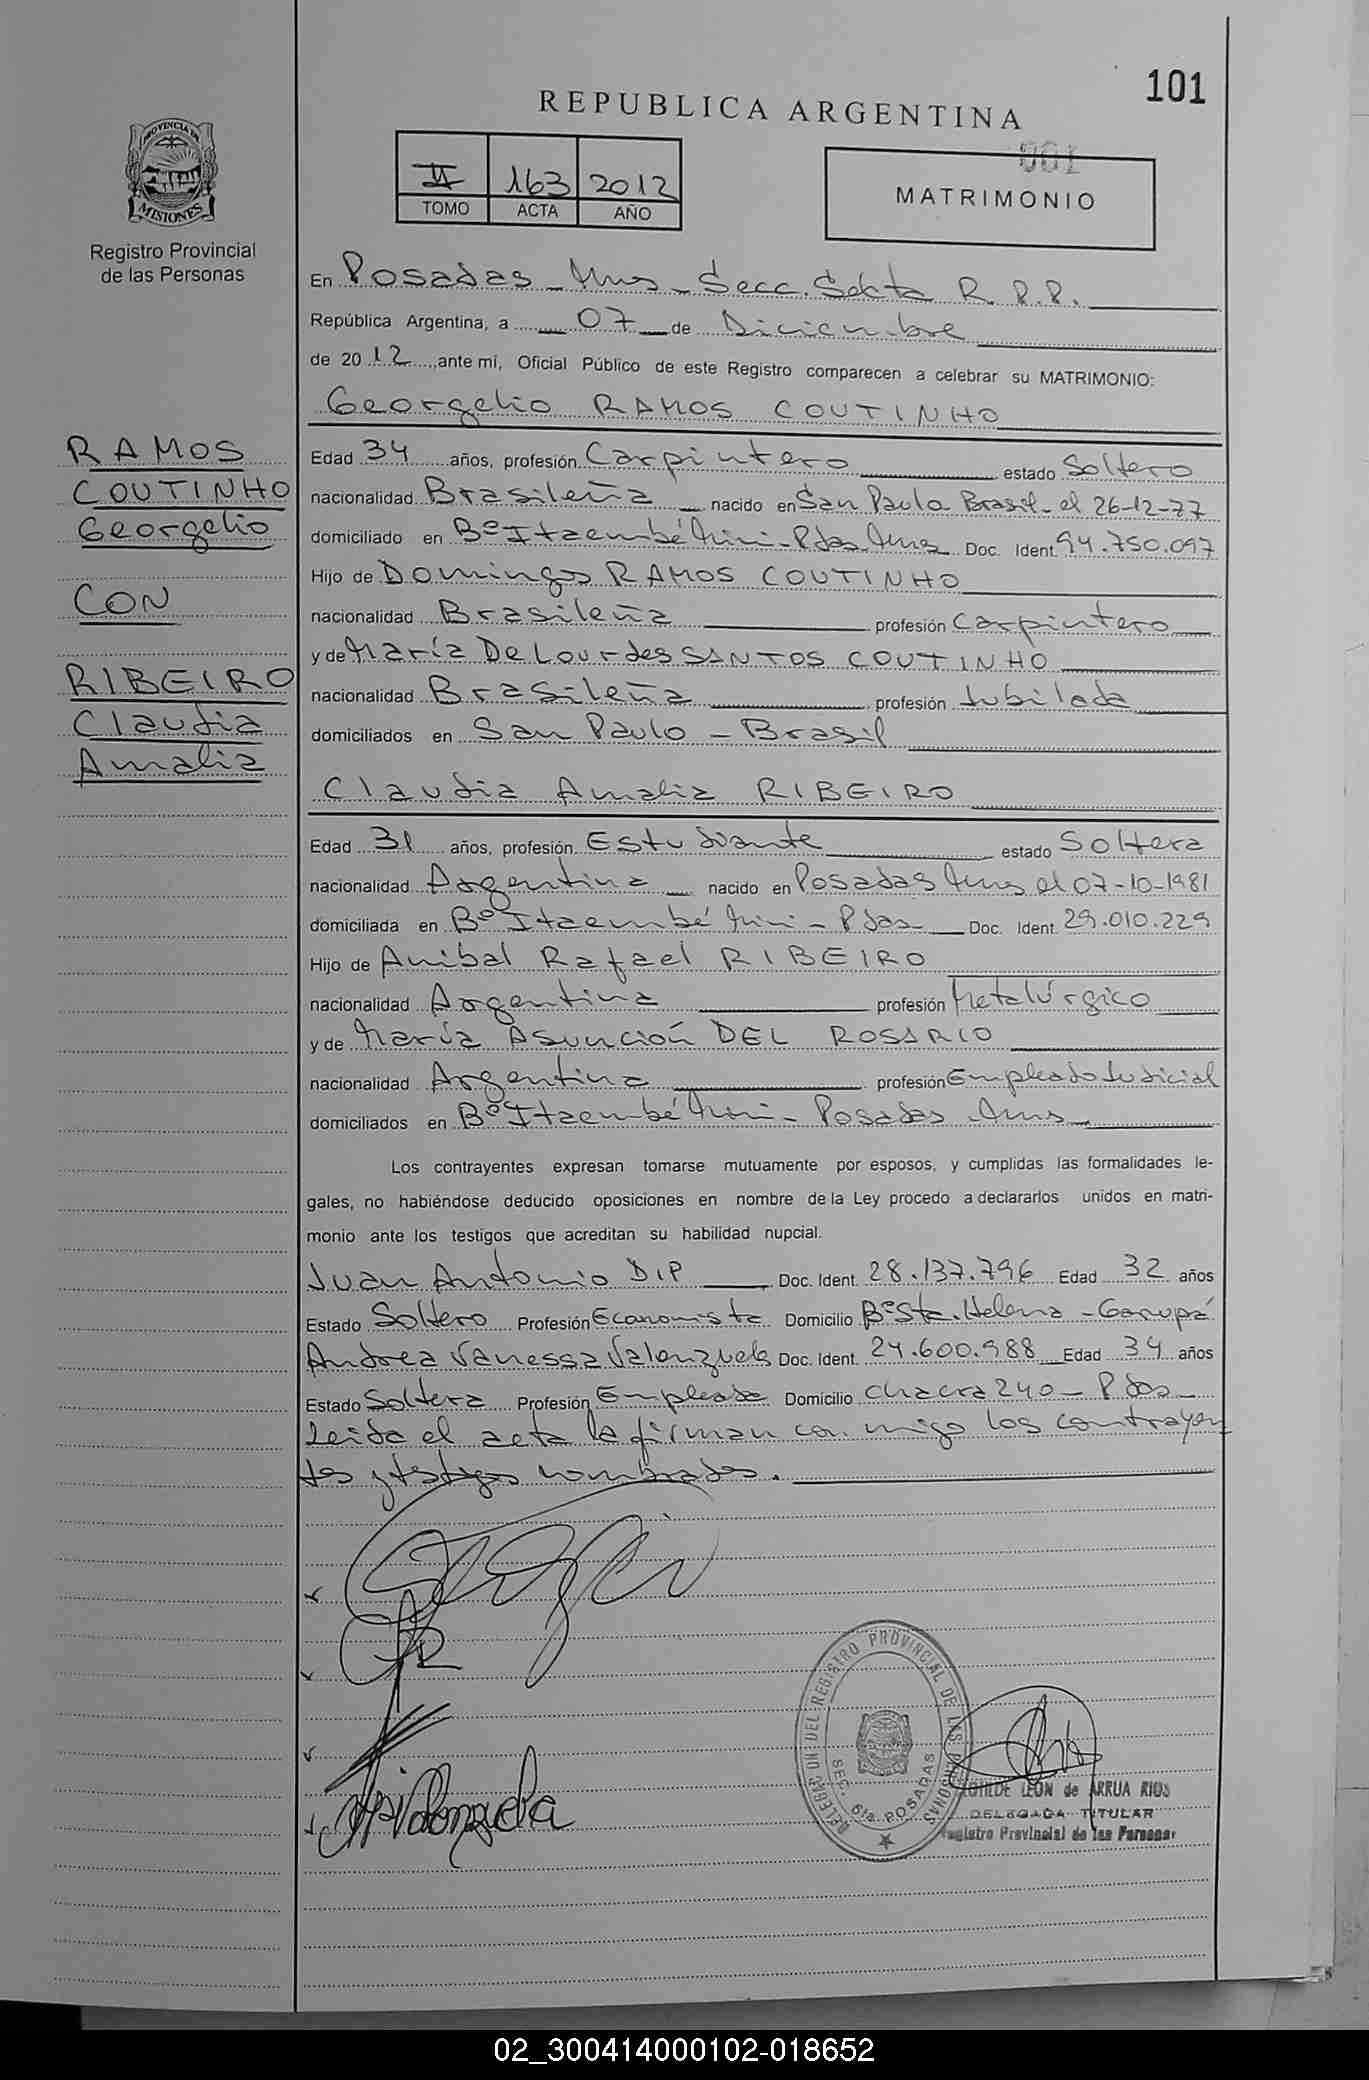 101
REPUBLICA ARGENTINA
001
II 163 2012
TOMO ACTA AÑO
MATRIMONIO
PROVINCIA DE
MISIONES
Registro Provincial
de las Personas
En Posadas - Mnes - Secc. Sexta R. P. P.
República Argentina, a 07 de Diciembre
de 2012, ante mí, Oficial Público de este Registro comparecen a celebrar su MATRIMONIO:
Georgelio RAMOS COUTINHO
RAMOS
COUTINHO
Georgelio
CON
RIBEIRO
Claudia
Amalia
Edad 34 años, profesión Carpintero estado Soltero
nacionalidad Brasileña nacido en San Paulo Brasil - el 26-12-77
domiciliado en Bº Itaembé Mini - Pdas. Mnes Doc. Ident. 94.750.097
Hijo de Domingos RAMOS COUTINHO
nacionalidad Brasileña profesión Carpintero
y de María De Lourdes SANTOS COUTINHO
nacionalidad Brasileña profesión Jubilada
domiciliados en San Paulo - Brasil
Claudia Amalia RIBEIRO
Edad 31 años, profesión Estudiante estado Soltera
nacionalidad Argentina nacido en Posadas Mnes el 07-10-1981
domiciliada en Bº Itaembé Mini - Pdas - Doc. Ident. 29.010.229
Hijo de Anibal Rafael RIBEIRO
nacionalidad Argentina profesión Metalúrgico
y de María Asunción DEL ROSARIO
nacionalidad Argentina profesión Empleado Judicial
domiciliados en Bº Itaembé Mini - Posadas Mnes
Los contrayentes expresan tomarse mutuamente por esposos, y cumplidas las formalidades le-
gales, no habiéndose deducido oposiciones en nombre de la Ley procedo a declararlos unidos en matri-
monio ante los testigos que acreditan su habilidad nupcial.
Juan Antonio DIP Doc. Ident. 28.137.796 Edad 32 años
Estado Soltero Profesión Economista Domicilio Bº Sta. Helena - Garupá
Andrea Vanessa Valenzuela Doc. Ident. 24.600.988 Edad 34 años
Estado Soltera Profesión Empleada Domicilio chacra 240 - Pdas -
Leida el acta la firman con migo los contrayen
tes y testigos nombrados.
DELEGACION DEL REGISTRO PROVINCIAL DE LAS PERSONAS
SEC. 6ta. POSADAS
LEON de ARRUA RIOS
DELEGADA TITULAR
Registro Provincial de las Personas
02_300414000102-018652